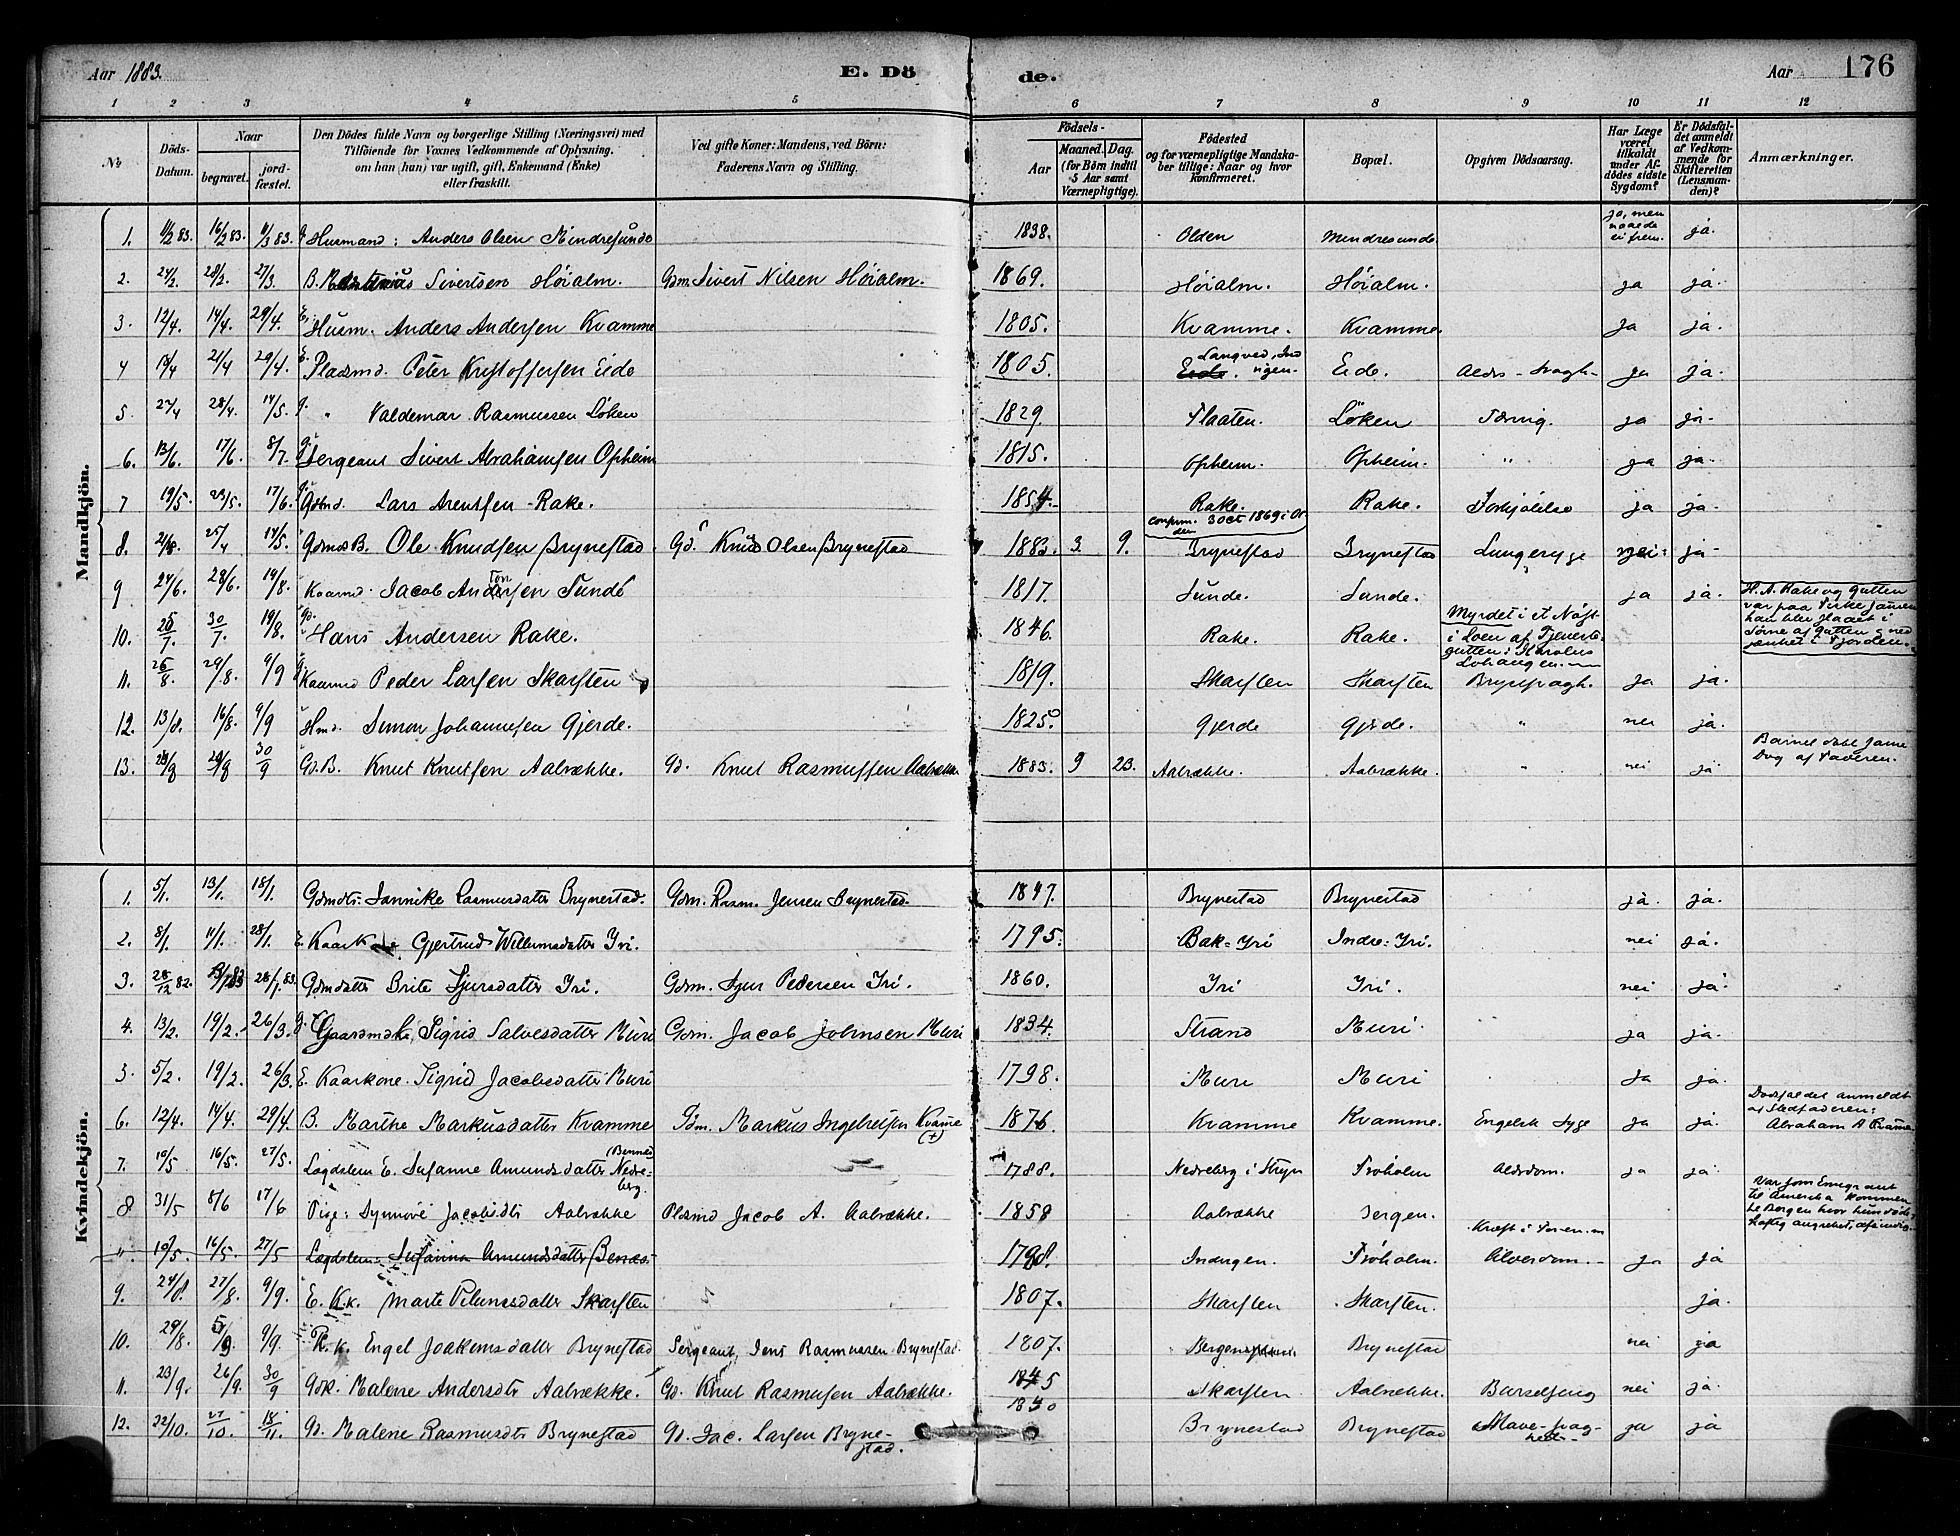 Aar 1883. E. Dö de. Aar 176
1 2 3 4 5 6 7 8 9 10 11 12
No
Döds-Datum.
Naar
begravet. jordfæstet.
Den Dödes fulde Navn og borgerlige Stilling (Næringsvei) med
Tilföiende for Voxnes Vedkommende af Oplysning,
om han (hun) var ugift, gift, Enkemand (Enke)
eller fraskilt.
Ved gifte Koner: Mandens, ved Börn:
Faderens Navn og Stilling.
Födsels-
Aar
Maaned. Dag.
(for Börn indtil
5 Aar samt
Værnepligtige).
Födested
og for værnepligtige Mandskaber tillige: Naar og hvor
konfirmeret.
Bopæl.
Opgiven Dödsaarsag.
Har Læge
været
tilkaldt
under Afdödes sidste
Sygdom?
Er Dödsfaldet anmeldt
af Vedkommende for
Skifteretten
(Lensmanden)?
Anmærkninger.
Mandkjön.
1. 11/2 83. 16/2 83. 11/3 83. g. Husmand: Anders Olsen Mindresunde 1838. Olden Mindresunde ja, men naaede ei frem. ja.
2. 24/2. 28/2. 27/3. B. Sivertsen Höialm. Gdm. Sivert Nilsen Höialm. 1869. Höialm. Höialm. ja ja.
3. 12/4. 14/4. 29/4. E. Husm. Anders Andersen Kvamme 1805. Kvamme. Kvamme. ja ja.
4 18/4 21/4 29/4. E. Pladsmd. Peter Kristoffersen Eide 1805. Eide. Langved, Indvigen. Eide. Alders-svagh. ja ja.
5 27/4 28/4. 14/5. g. " Valdemar Rasmussen Löken 1829. Flaaten. Löken Tæring. ja ja.
6. 13/6. 17/6. 8/7. g. Sergeant Sivert Abrahamsen Opheim 1815. Opheim. Opheim. " ja ja.
7 19/5. 23/5. 17/6. g. Gdmd. Lars Arentsen Rake. 1854. Rake. confirm. 3 oct 1869 i Olden Rake. Forkjölelse ja ja.
8. 21/8. 25/4 14/5. Gdmds B. Ole Knudsen Brynestad. Gd. Knud Olsen Brynestad 1883. 3. 9. Brynestad Brynestad Lungesyge nei ja.
9 24/6. 28/6. 19/8. Kaarmd. Jacob Andersen Sunde 1817. Sunde. Sunde. ja ja.
10. 25/7. 30/7. 19/8. Gd. Hans Andersen Rake. 1846. Rake. Rake. Myrdet i et Nöst i Loen af Tjenestegutten: Lohaugen. H. A. Rake og gutten var paa Fiske sammen han blev slaaet i af gutten og nedsænket i Fjorden.
11. 26/8. 29/8. 9/9 g. Kaarmd Peder Larsen Skarsten 1819. Skarsten Skarsten Brystsvagh. ja ja.
12. 13/8. 16/8. 9/9 " Hmd. Simon Johannesen Gjerde. 1825. Gjerde Gjerde. " nei ja.
13. 28/8 29/8 30/9 Gd. B. Knut Knutsen Aabrække. Gd. Knut Rasmussen Aabrække 1883. 9 23. Aabrække. Aabrække. " nei ja Barnet döbt samme Dag af Faderen.
Kvindekjön.
1. 5/1. 13/1. 18/1. Gdmdtr. Jannike Rasmusdatter Brynestad. Gdm. Rasm. Jensen Brynestad. 1847. Brynestad Brynestad ja. ja.
2. 8/1. 11/1. 28/1. E. Kaark Gjertrud Willumsdatter Yri. 1795. Bak-Yri Indre-Yri. nei ja.
3. 28/12 82. 13/1 83 28/1 83. Gdmdatter Brite Sjursdatter Yri. Gdm. Sjur Pedersen Yri. 1860. Yri Yri. nei ja
4. 13/2. 19/2. 26/3. g. Gaardmdk. Sigrid Salvesdatter Muri Gdm. Jacob Johnsen Muri 1834. Strand Muri. ja ja.
5. 5/2. 19/2. 26/3. E. Kaarkone. Sigrid Jacobsdatter Muri 1798. Muri Muri ja ja.
6. 12/4. 14/4. 29/4. B. Marthe Markusdatter Kvamme Pdm. Markus Ingebrigtsen Kvamme (+) 1876 Kvamme Kvamme. Engelsk Syge ja ja. Dödsfaldet anmeldt af Stedfaderen: Abraham A Kvamme
7. 10/5 16/5. 27/5. Lægdslem E. Susanne Amundsdatter (Bennes) Nedreberg. 1788. Nedreberg i Stryn Tröholm Alderdom. ja ja.
8 31/5 8/6 17/6 Pige: Synnöve Jacobsdtr Aabrække Pladsmd Jacob A. Aabrække. 1858 Aabrække Bergen. Kræft i Var som Emigrant til Amerika kommen til Bergen hvor hun döde, heftig angrebet,
" 10/5. 16/5. 27/5 Lægdslem Susanna Amundsdatter Benæs 1788. Indvigen. Tröholm. Alderdom. ja ja
9. 24/8. 27/8. 9/9. E. Kk. Marte Skarsten 1807. Skarsten Skarsten. ja.
10. 29/8. 5/9 9/9. K. k. Engel Joakimsdatter Brynestad Sergeant Jens Rasmussen Brynestad. 1807. Bergen Brynestad nei ja
11. 23/9. 26/9. 30/9 Gdk. Malene Andersdtr Aabrække. Gd. Knut Rasmusen Aabrække. 1845 Skarsten Aabrække. Barselseng nei ja.
12. 22/10. 27/10. 18/11. Gd. Malene Rasmusdtr Brynestad Gd. Jac. Larsen Brynestad. 1830 Brynestad Brynestad Mave-svaghed- ja ja